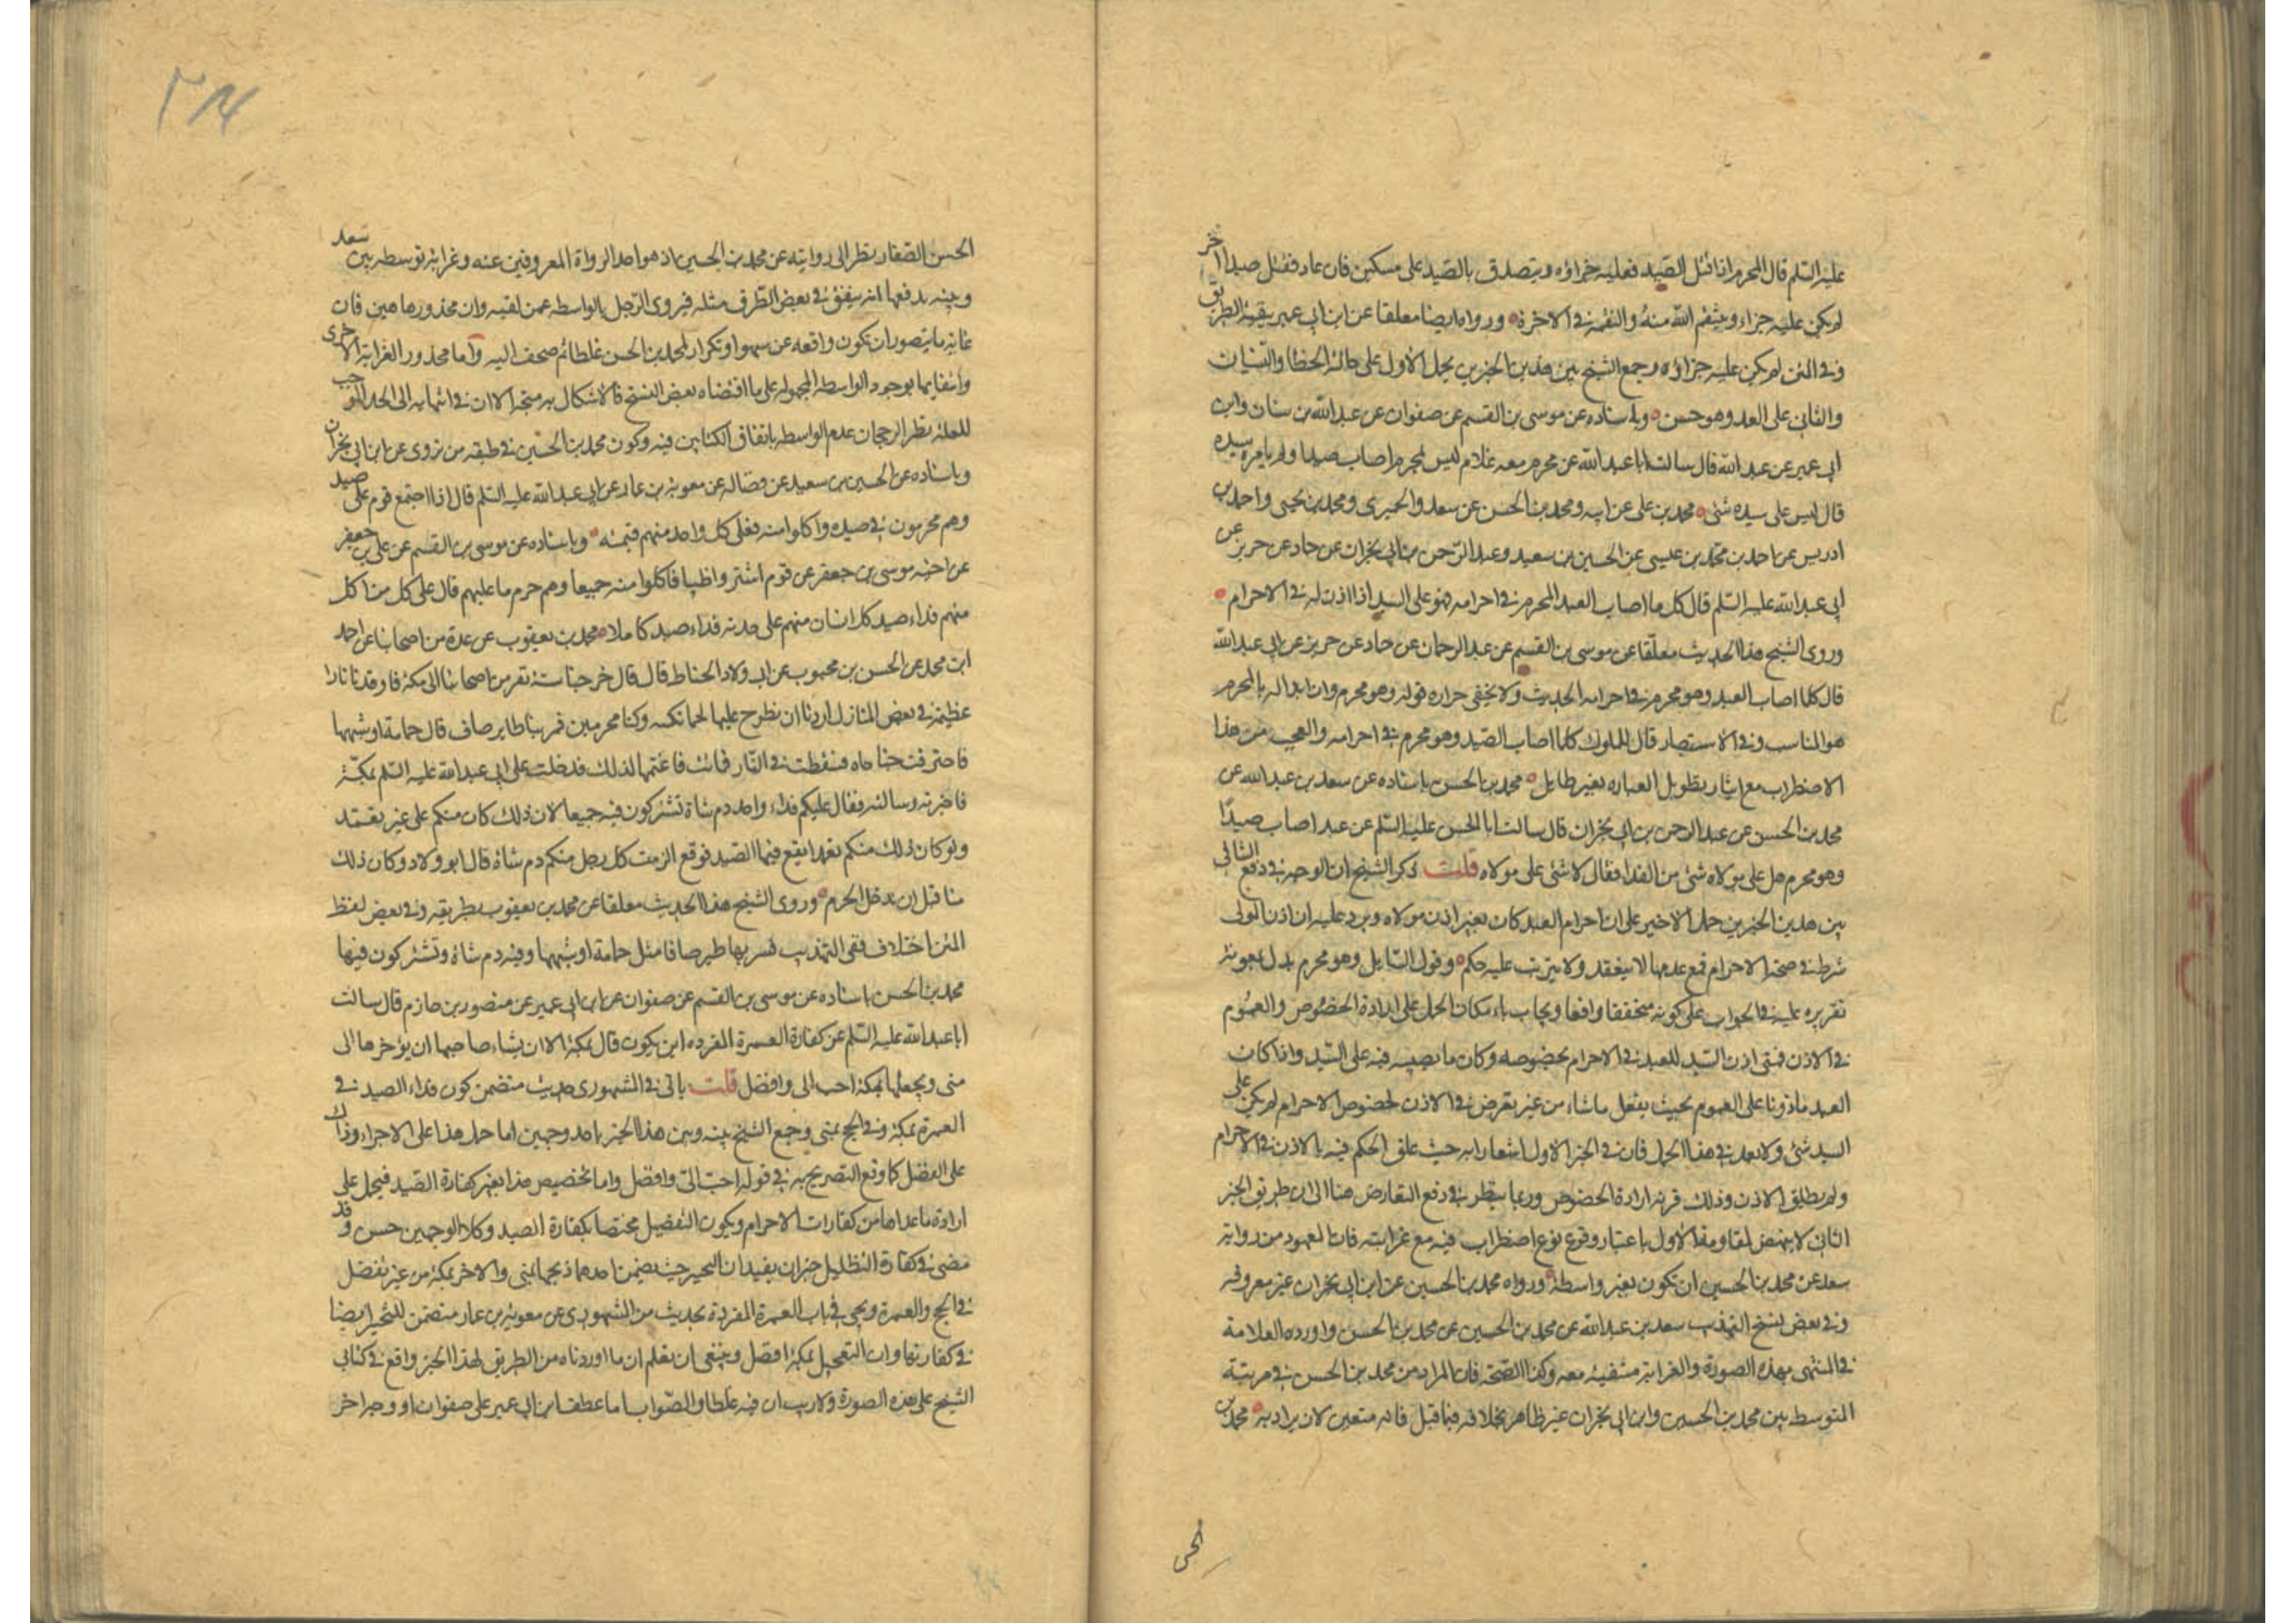 عليه السلم قال المحرم اذا قتل الصيد فعليه جزاؤه ويتصدق بالصيد على مسكين فان عاد فقتل صيدا اخر
لم يكن عليه جزاء وينتقم الله منه والنقمة في الاخرة ورواه ايضا معلقا عن ابن ابي عمير ببقية الطريق
وفي المتن لم يكن عليه جزاؤه وجمع الشيخ بين هذين الخبرين بحمل الاول على حالة الخطا والنسيان
والثاني على العمد وهو حسن وباسناده عن موسى بن القسم عن صفوان عن عبد الله بن سنان وابن
ابي عمير عن عبد الله قال سالت ابا عبد الله عن محرم معه غلام ليس بمحرم اصاب صيدا ولم يامره سيده
قال ليس على سيده شئ محمد بن علي عن ابيه ومحمد بن الحسن عن سعد والحميري ومحمد بن يحيى واحمد بن
ادريس عن احمد بن محمد بن عيسى عن الحسين بن سعيد وعبد الرحمن بن ابي نجران عن حماد عن حريز عن
ابي عبد الله عليه السلم قال كل ما اصاب العبد المحرم في احرامه فهو على السيد اذا اذن له في الاحرام
وروى الشيخ هذا الحديث معلقا عن موسى بن القسم عن عبد الرحمان عن حماد عن حريز عن ابي عبد الله
قال كلما اصاب العبد وهو محرم في احرامه الحديث ولا يخفى حزازة قوله وهو محرم وان ابداله بالمحرم
هو المناسب وفي الاستبصار قال المملوك كلما اصاب الصيد وهو محرم في احرامه والعجب من هذا
الاضطراب مع ايثار تطويل العبارة بغير طايل محمد بن الحسن باسناده عن سعد بن عبد الله عن
محمد بن الحسن عن عبد الرحمن بن ابي نجران قال سالت ابا الحسن عليه السلم عن عبد اصاب صيدًا
وهو محرم هل على مولاه شئ من الفدا فقال لا شئ على مولاه قلت ذكر الشيخ ان الوجه في دفع التنافي
بين هذين الخبرين حمل الاخير على ان احرام العبد كان بغير اذن مولاه ويرد عليه ان اذن المولى
شرط في صحة الاحرام فمع عدمها لا ينعقد ولا يترتب عليه حكم وقول السايل وهو محرم يدل بمعونة
تقريره عليه في الجواب على كونه متحققا واقعا ويجاب بامكان الحمل على ارادة الخصوص والعموم
في الاذن فمتى اذن السيد للعبد في الاحرام بخصوصه وكان ما يصيبه فيه على السيد واذا كان
العبد ماذونا على العموم بحيث يفعل ما شاء من غير تعرض في الاذن لخصوص الاحرام لم يكن على
السيد شئ ولا بعد في هذا الحمل فان في الخبر الاول اشعارا به حيث علق الحكم فيه بالاذن في الاحرام
ولم يطلق الاذن وذلك قرينة ارادة الخصوص وربما ينظر في دفع التعارض هنا الى ان طريق الخبر
الثاني لا ينهض لمقاومة الاول باعتبار وقوع نوع اضطراب فيه مع غرابته فان المعهود من رواية
سعد عن محمد بن الحسين ان تكون بغير واسطة ورواه محمد بن الحسين عن ابن ابي نجران غير معروفه
وفي بعض نسخ التهذيب سعد بن عبد الله عن محمد بن الحسين عن محمد بن الحسن واورده العلامة
في المنتهى بهذه الصورة والغرابة منتفية معه وكذا الصحة فان المراد من محمد بن الحسن في مرتبة
المتوسط بين محمد بن الحسين وابن ابي نجران غير ظاهر بخلافه فيما قبل فانه متعين لان يراد به محمد بن
الحسن
الحسن الصفار نظر الى روايته عن محمد بن الحسين اذ هو احد الرواة المعروفين عنه وغرابة توسطه بين سعد
وبينه يدفعها انه يتفق في بعض الطرق مثله فيروى الرجل بالواسطه عمن لقيه وان محذورها هين فان
غاية ما يتصور ان تكون واقعه عن سهو او تكرار لمحمد بن الحسن غلطا ثم صحف اليه واما محذور الغرابة الاخرى
وانتفايها بوجود الواسطه المجهولة على ما اقتضاه بعض النسخ فالاشكال به متجه الا ان في انتهايه الى الحد الموجب
للعلة نظر الرجحان عدم الواسطه باتفاق الكتابين فيه وكون محمد بن الحسين في طبقه من يروى عن ابن ابي نجران
وباسناده عن الحسين بن سعيد عن فضاله عن معوية بن عمار عن ابي عبد الله عليه السلم قال اذا اجتمع قوم على صيد
وهم محرمون في صيده واكلوا منه فعلى كل واحد منهم قيمته وباسناده عن موسى بن القسم عن علي بن جعفر
عن اخيه موسى بن جعفر عن قوم اشتروا ظبيا فاكلوا منه جميعا وهم حرم ما عليهم قال على كل من اكل
منهم فداء صيد كل انسان منهم على حدته فداء صيد كاملا محمد بن يعقوب عن عدة من اصحابنا عن احمد
ابن محمد عن الحسن بن محبوب عن ابي ولاد الحناط قال قال خرجنا ستة نفر من اصحابنا الى مكة فاوقدنا نارا
عظيمة في بعض المنازل اردنا ان نطرح عليها لحما نكببه وكنا محرمين فمر بنا طاير صاف قال حمامة او شبهها
فاحترقت جناحاه فسقطت في النار فماتت فاغتممنا لذلك فدخلت على ابي عبد الله عليه السلم بمكة
فاخبرته وسالته فقال عليكم فداء واحد دم شاة تشتركون فيه جميعا لان ذلك كان منكم على غير تعمد
ولو كان ذلك منكم تعمدا ليقع فيها الصيد فوقع الزمت كل رجل منكم دم شاة قال ابو ولاد وكان ذلك
منا قبل ان ندخل الحرم وروى الشيخ هذا الحديث معلقا عن محمد بن يعقوب بطريقه وفي بعض لفظ
المتن اختلاف ففي التهذيب فمر بها طير صافا مثل حمامة او شبهها وفيه دم شاة وتشتركون فيها
محمد بن الحسن باسناده عن موسى بن القسم عن صفوان عن ابن ابي عمير عن منصور بن حازم قال سالت
ابا عبد الله عليه السلم عن كفارة العمرة المفرده اين يكون قال بمكة الا ان يشاء صاحبها ان يؤخرها الى
منى ويجعلها بمكة احب الى وافضل قلت ياتي في المشهوري حديث متضمن كون فداء الصيد في
العمرة بمكة وفي الحج بمنى وجمع الشيخ بينه وبين هذا الخبر باحد وجهين اما حمل هذا على الاجزاء وذاك
على الفضل كما وقع التصريح به في قوله احب الي وافضل واما تخصيص هذا بغير كفارة الصيد فيحمل على
ارادة ما عداها من كفارات الاحرام ويكون التفضيل مختصا بكفارة الصيد وكلا الوجهين حسن وقد
مضى في كفارة التظليل خبران يفيدان التخيير حيث تضمن احدهما ذبحها بمنى والاخر بمكة من غير تفضل
في الحج والعمرة ويجي في باب العمرة المفردة بحديث من المشهوري عن معوية بن عمار متضمن للتخيير ايضا
في كفارتها وان التعجيل بمكة افضل وينبغي ان يعلم ان ما اوردناه من الطريق لهذا الخبر واقع في كتابي
الشيخ على هذه الصورة ولا ريب ان فيه غلطا والصواب اما عطف ابن ابي عمير على صفوان او وجد اخر